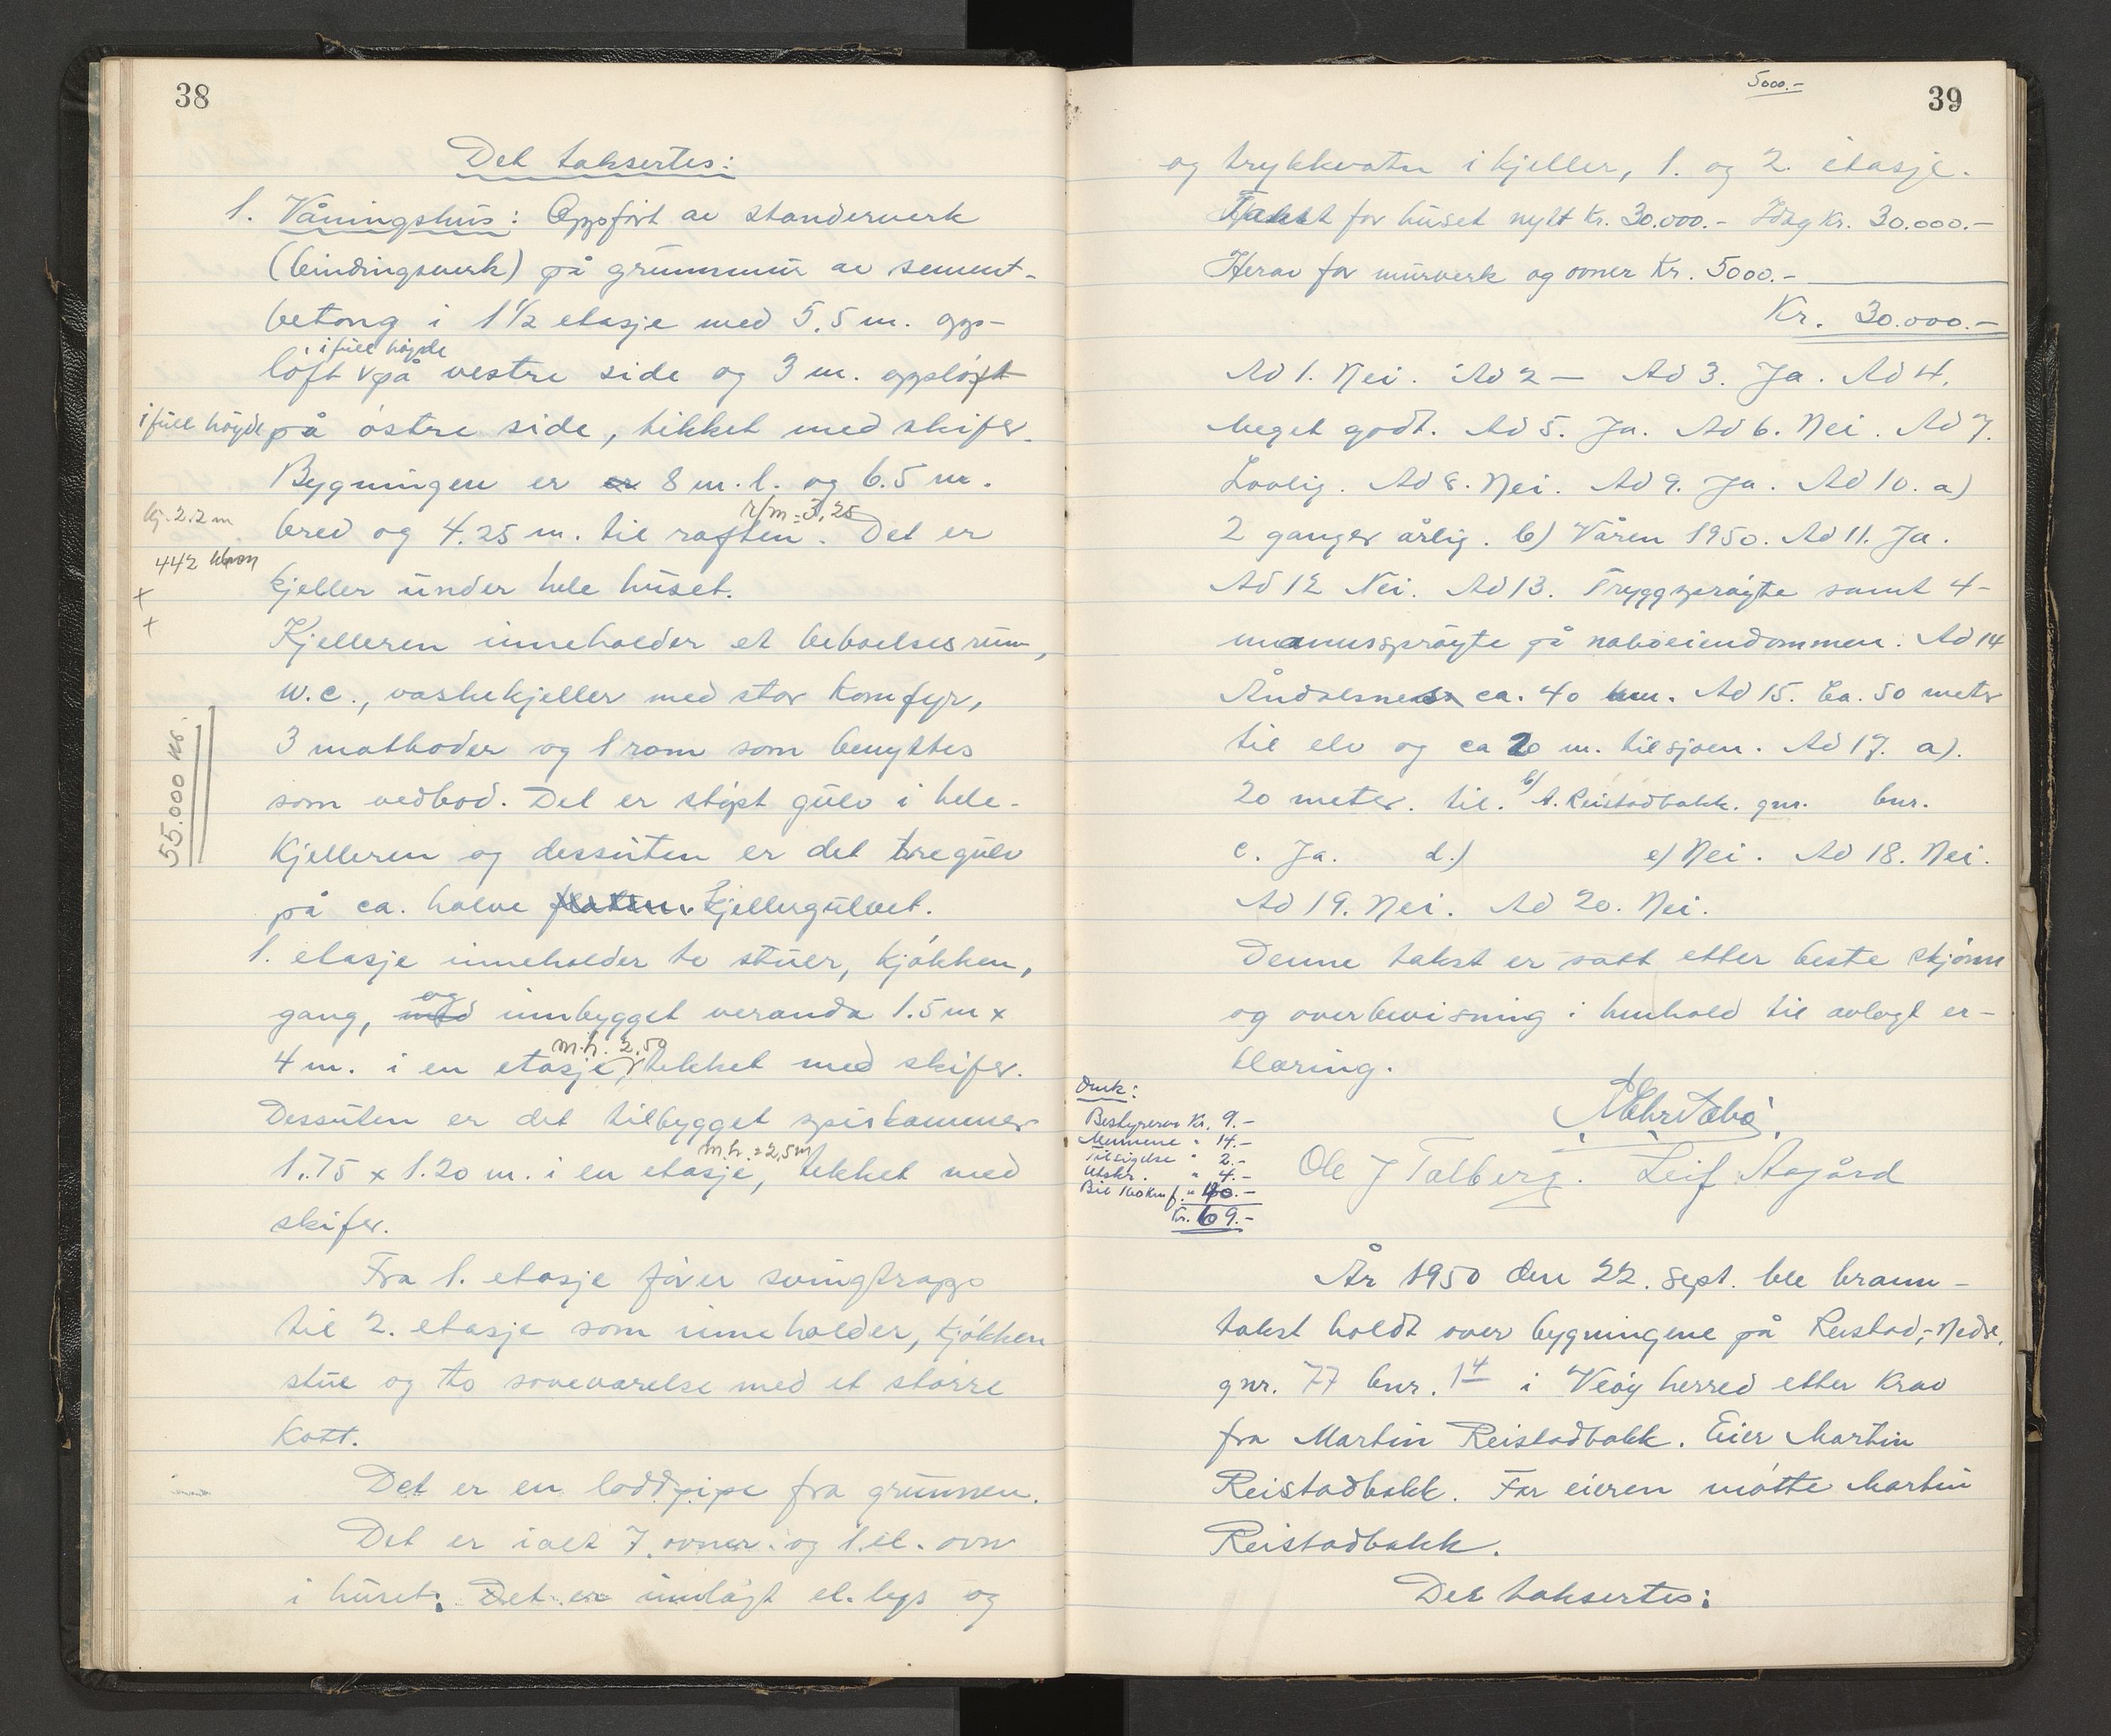 38
Det taksertes:
1. Våningshus: Oppført av standerverk
(bindingsverk) på grunnmur av sement-
betong i 1½ etasje med 5,5 m. opp-
i full høyde
løft på vestre side og 3 m. oppløft
i full høyde på østre side, tekket med skifer.
Bygningen er er 8 m. l. og 6.5 m.
kj. 2.2 m
r/m = 3,25
bred og 4.25 m. til raften. Det er
442 kbm
kjeller under hele huset.
Kjelleren inneholder et beboelsesrum,
w.c., vaskekjeller med stor komfyr,
3 matboder og 1 rom som benyttes
55.000 kr.
som vedbod. Det er støpt gulv i hele
Kjelleren og dessuten er det tregulv
på ca. halve flaten. kjellergulvet.
1. etasje inneholder to stuer, kjøkken,
og
gang, med innbygget veranda 1.5 m x
m.h. 2,50
4 m. i en etasje, tekket med skifer.
Dessuten er det tilbygget spiskammer
m.h. = 2,5 m
1.75 x 1.20 m. i en etasje, tekket med
skifer.
Fra 1. etasje fører svingtrapp
til 2. etasje som inneholder, kjøkken
stue og to soveværelse med et større
Kott.
Det er en loddpipe fra grunnen.
Det er ialt 7 ovner og 1 el. ovn
i huset. Det er innlagt el. lys og
5000.-
39
og trykkvatn i kjeller, 1. og 2. etasje.
Takst for huset nytt kr. 30.000.- Idag kr. 30.000.-
Herav for murverk og ovner kr. 5000.-
Kr. 30.000.-
Ad 1. Nei. Ad 2 — Ad 3. Ja. Ad 4.
Meget godt. Ad 5. Ja. Ad 6. Nei. Ad 7.
Lovlig. Ad 8. Nei. Ad 9. Ja. Ad 10. a)
2 ganger årlig. b) Våren 1950. Ad 11. Ja.
Ad 12 Nei. Ad 13. Tryggsprøyte samt 4-
mannssprøyte på naboeiendommen. Ad 14
Åndalsnes ca. 40 km. Ad 15. Ca. 50 meter
til elv og ca 20 m. til sjøen. Ad 17. a).
20 meter. til. b/ A. Reistadbakk. gnr. bnr.
c. Ja. d.) e) Nei. Ad 18. Nei.
Ad 19. Nei. Ad 20. Nei.
Denne takst er satt etter beste skjønn
og overbevisning i henhold til avlagt er-
klæring.
Omk:
Bestyreren Kr. 9.-
Mennene " 14.-
Tilsigelse " 2.-
Utskr. " 4.-
Bil 160 km f. " 40.-
Kr. 69.-
Ole J Talberg. Leif Aagård
År 1950 den 22. sept. ble brann-
takst holdt over bygningene på Reistad,- Nedre,
gnr. 77 bnr. 14 i Veøy herred etter krav
fra Martin Reistadbakk. Eier Martin
Reistadbakk. For eieren møtte Martin
Reistadbakk.
Det taksertes: